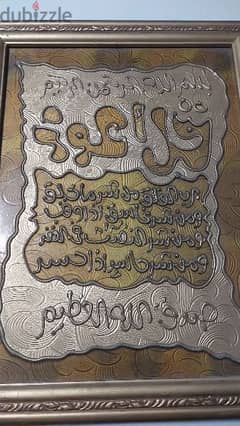 dubizzle
بسم الله الرحمن الرحيم
قل اعوذ
برب الفلق من شر ما خلق
ومن شر غاسق اذا وقب
ومن شر النفثت في العقد
ومن شر حاسد اذا حسد
صدق الله العظيم